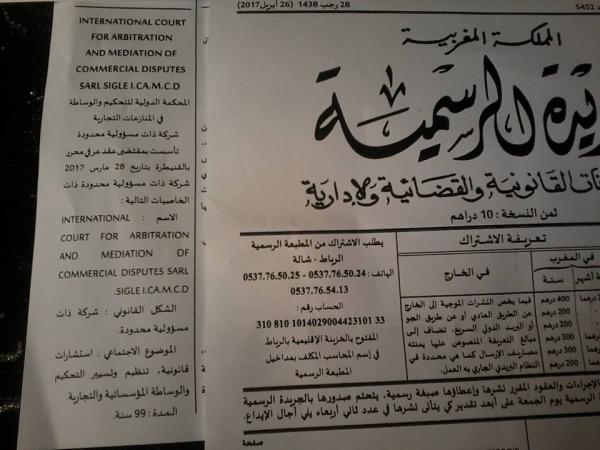 INTERNATIONAL COURT
FOR ARBITRATION
AND MEDIATION OF
COMMERCIAL DISPUTES
SARL SIGLE I.CA.M.C.D
المحكمة الدولية للتحكيم والوساطة
في المنازعات التجارية
شركة ذات مسؤولية محدودة
تأسست بمقتضى عقد عرفي محرر
بالقنيطرة بتاريخ 28 مارس 2017
شركة ذات مسؤولية محدودة ذات
الخاصيات التالية :
الاسم : INTERNATIONAL
COURT FOR ARBITRATION
AND MEDIATION OF
COMMERCIAL DISPUTES SARL
SIGLE I.CA.M.C.D.
الشكل القانوني : شركة ذات
مسؤولية محدودة.
الموضوع الاجتماعي : استشارات
قانونية، تنظيم وتسيير التحكيم
والوساطة المؤسساتية والتجارية.
المدة : 99 سنة.
5452
28 رجب 1438 (26 أبريل 2017)
المملكة المغربية
الرسمية
القانونية والقضائية والإدارية
ثمن النسخة : 10 دراهم
تعريفة الاشتراك
في المغرب
سنة
أشهر
في الخارج
400 درهم
200 درهم
200 درهم
300 درهم
300 درهم
فيما يخص النشرات الموجهة إلى الخارج
عن الطريق العادي أو عن طريق الجو
أو البريد الدولي السريع، تضاف إلى
مبالغ التعريفة المنصوص عليها يمنته
مصاريف الإرسال كما هي محددة في
النظام البريدي الجاري به العمل.
يطلب الاشتراك من المطبعة الرسمية
الرباط - شالة
الهاتف : 0537.76.50.24 - 0537.76.50.25
0537.76.54.13
الحساب رقم :
310 810 1014029004423101 33
المفتوح بالخزينة الإقليمية بالرباط
في إسم المحاسب المكلف بمداخيل
المطبعة الرسمية
الإجراءات والعقود المقرر نشرها وإعطاؤها صبغة رسمية، يتحتم صدورها بالجريدة الرسمية
الرسمية يوم الجمعة على أبعد تقدير كي يتأتى نشرها في عدد ثاني أربعاء يلي أجال الإيداع.
صفحة